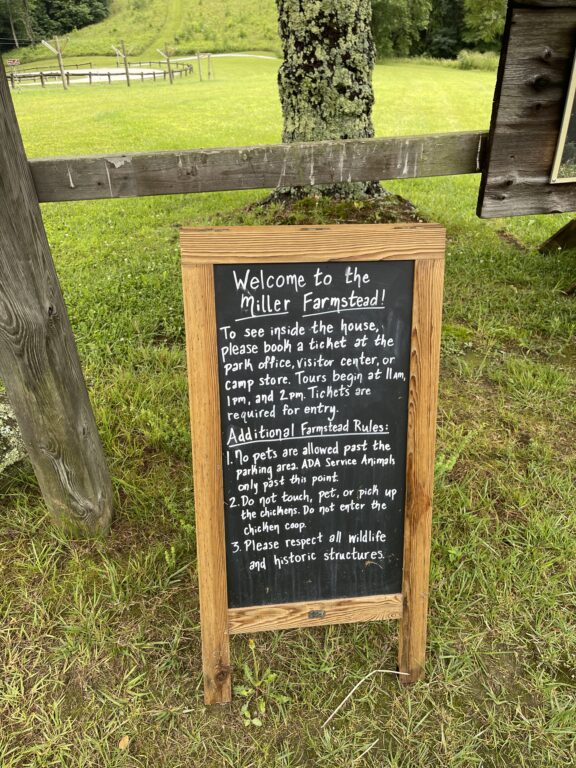 Welcome to the
Miller Farmstead!
To see inside the house,
please book a ticket at the
park office, visitor center, or
camp store. Tours begin at 11am,
1pm, and 2pm. Tickets are
required for entry.
Additional Farmstead Rules:
1. No pets are allowed past the
parking area. ADA Service Animals
only past this point.
2. Do not touch, pet, or pick up
the chickens. Do not enter the
chicken coop.
3. Please respect all wildlife
and historic structures.